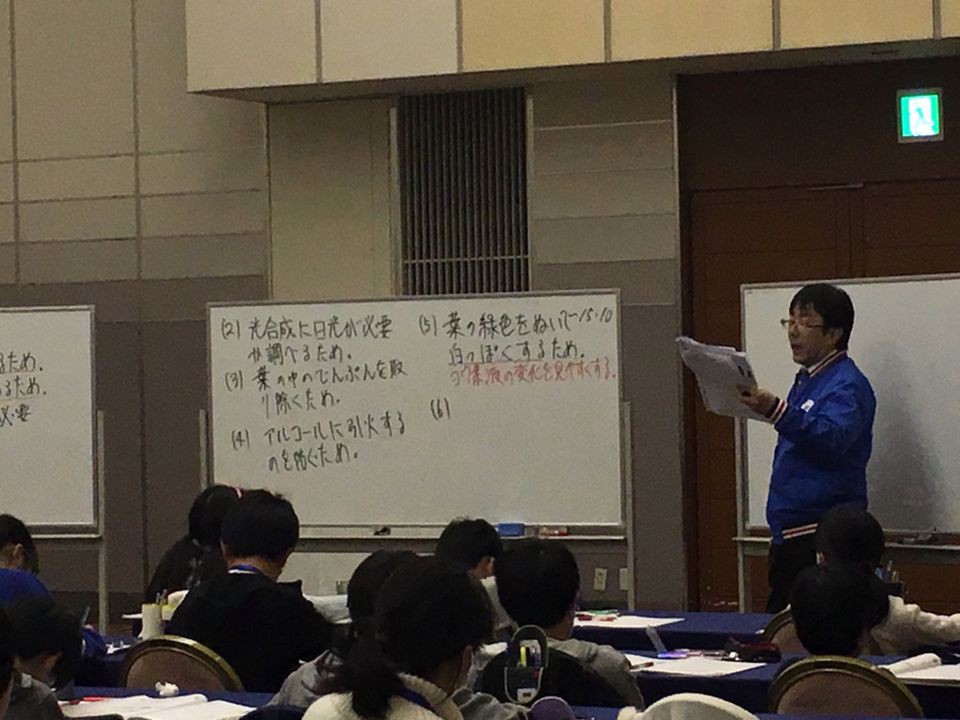 るため。
るため。
必要
(2) 光合成に日光が必要
か調べるため。
(3) 葉の中のでんぷんを取
り除くため。
(4) アルコールに引火する
のを防ぐため。
(5) 葉の緑色をぬいて
15:10
白っぽくするため。
ヨウ素液の変化を見やすくする。
(6)